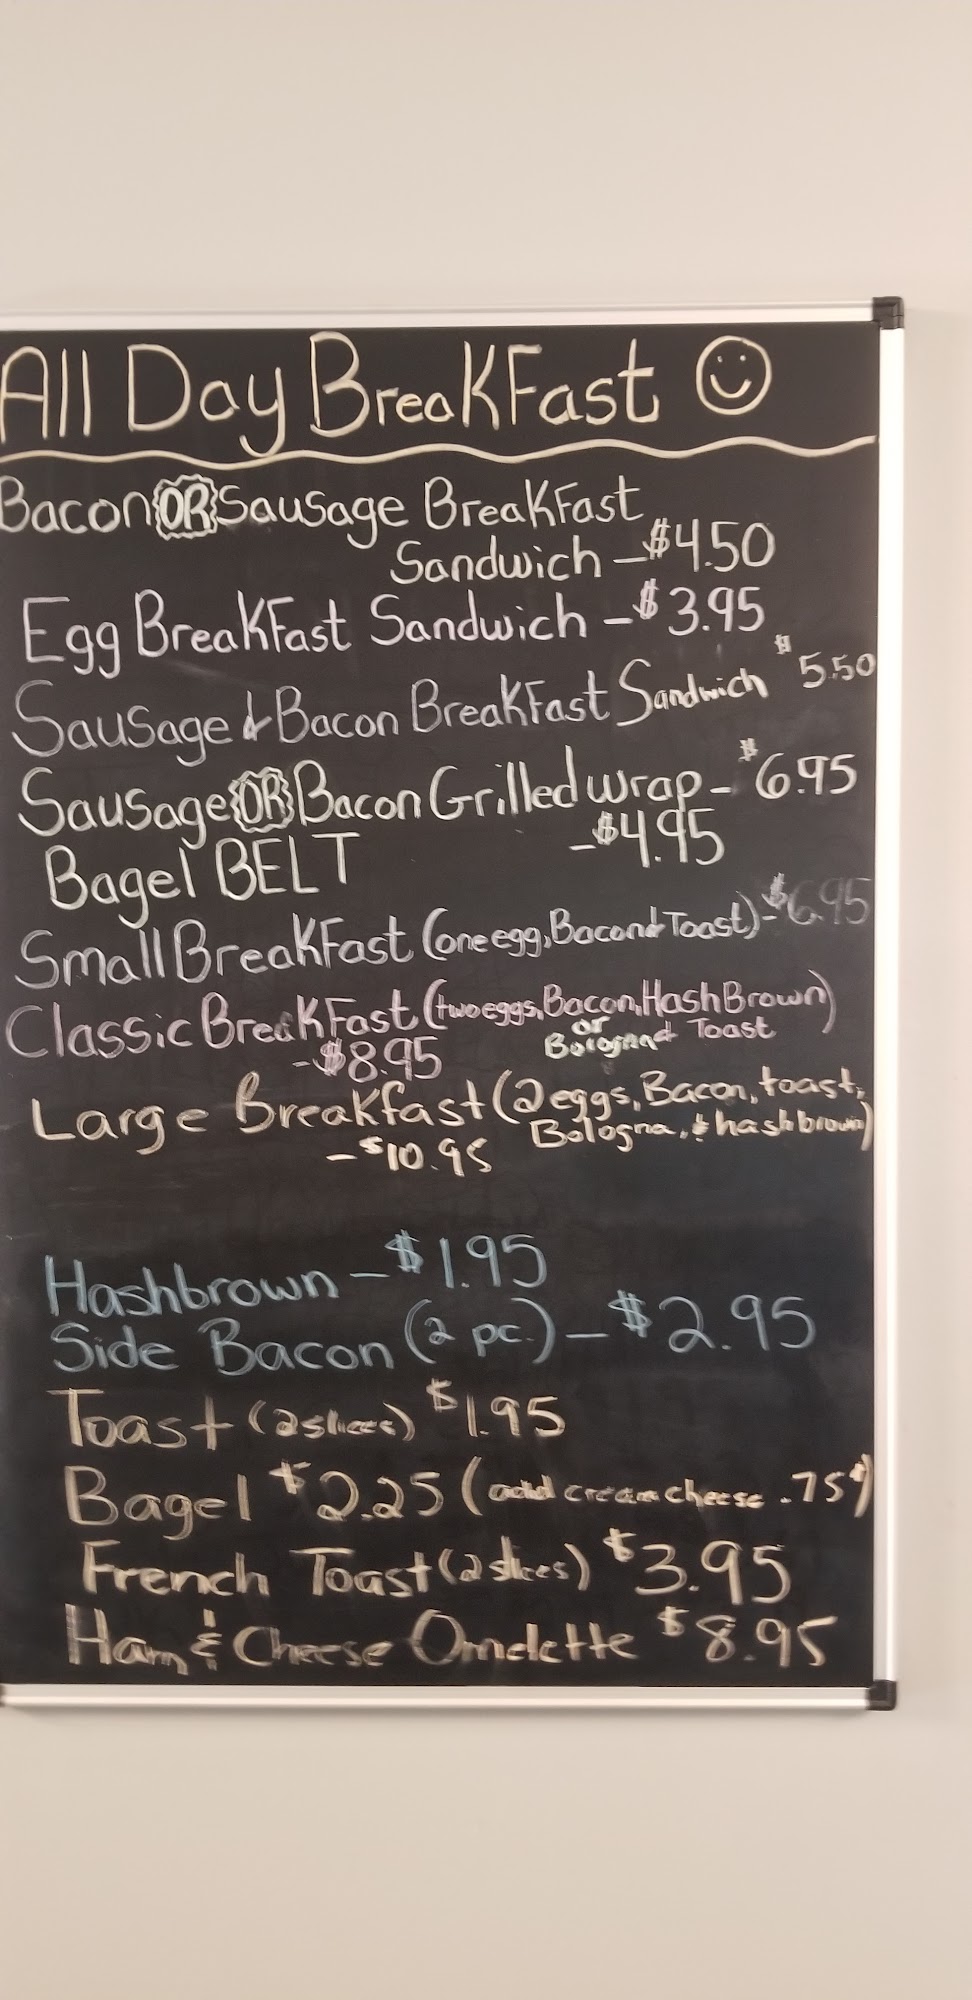 All Day BreakFast
Bacon OR Sausage BreakFast
Sandwich - $4.50
Egg BreakFast Sandwich - $3.95
Sausage & Bacon BreakFast Sandwich $5.50
Sausage OR Bacon Grilled wrap - $6.95
Bagel BELT - $4.95
Small BreakFast (one egg, Bacon & Toast) - $6.95
Classic BreakFast (two eggs, Bacon, HashBrown)
or Bologna & Toast
- $8.95
Large Breakfast (2 eggs, Bacon, toast,
Bologna, & hashbrown)
- $10.95
Hashbrown - $1.95
Side Bacon (2 pc.) - $2.95
Toast (2 slices) $1.95
Bagel $2.25 (add cream cheese .75¢)
French Toast (2 slices) $3.95
Ham & Cheese Omelette $8.95